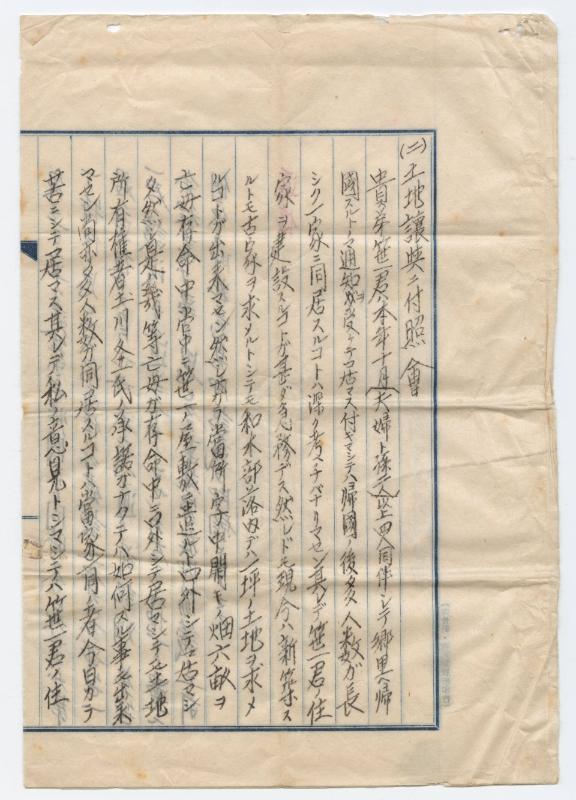 (二)土地讓與ニ付照會
貴弟笹一君ハ本年十月夫婦ト孫二人以上四人同伴シテ郷里ヘ帰
國スルトノ通知ガ有ッテ居マス付キマシテハ帰國ノ後多人数ガ長
シク一家ニ同居スルコトハ深ク考ヘナケバナリマセン其レデ笹一君ノ住
家ヲ建設スルコトガ甚ダ急務デス然レドモ現今ハ新築ス
ルトモ古家ヲ求メルトシテモ和木部落内デハ一坪ノ土地ヲ求メ
ルコトガ出来マセン然シナガラ當所字中開キノ畑六畝ヲ
亡母存命中ニ笹一ノ屋敷ニ遣スト口外シテ居マシ
タ然シ是我等亡母ガ存命中口外シテ居マシテモ土地
所有権者土川冬土氏ノ承諾ガナクテハ如何スル事モ出来
マセン尚亦多人数ガ同居スルコトハ當家一同ノ者今日カラ
苦ニシテ居マス其レデ私ノ意見トシマシテハ笹一君ノ住